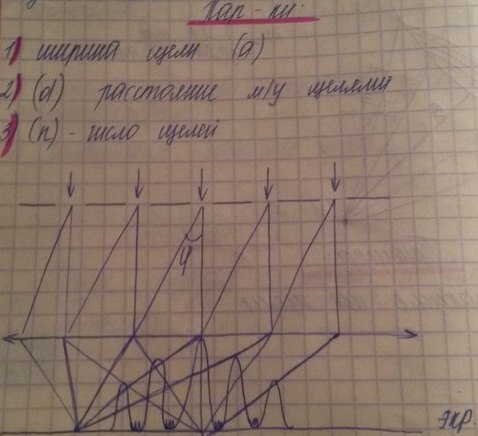 Пар-ки:
1) ширина щели (a)
2) (d) расстояние м/у щелями
3) (n) - число щелей
φ
экр.